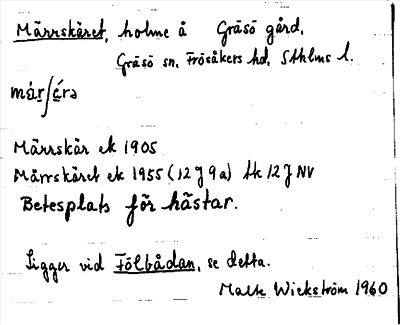 Märrskäret, holme å Gräsö gård,
Gräsö sn. Frösåkers hd. Sthlms l.
Märrskär ek 1905
Märrskäret ek 1955 (12 J 9a) tk 12 J NV
Betesplats för hästar.
Ligger vid Fölbådan, se detta.
Malte Wickström 1960